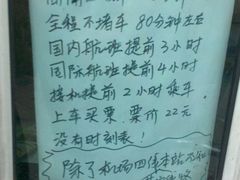 全程不堵车 80分钟左右
国内航班提前3小时
国际航班提前4小时
接机提前2小时乘车
上车买票 票价22元
没有时刻表!
除了机场四